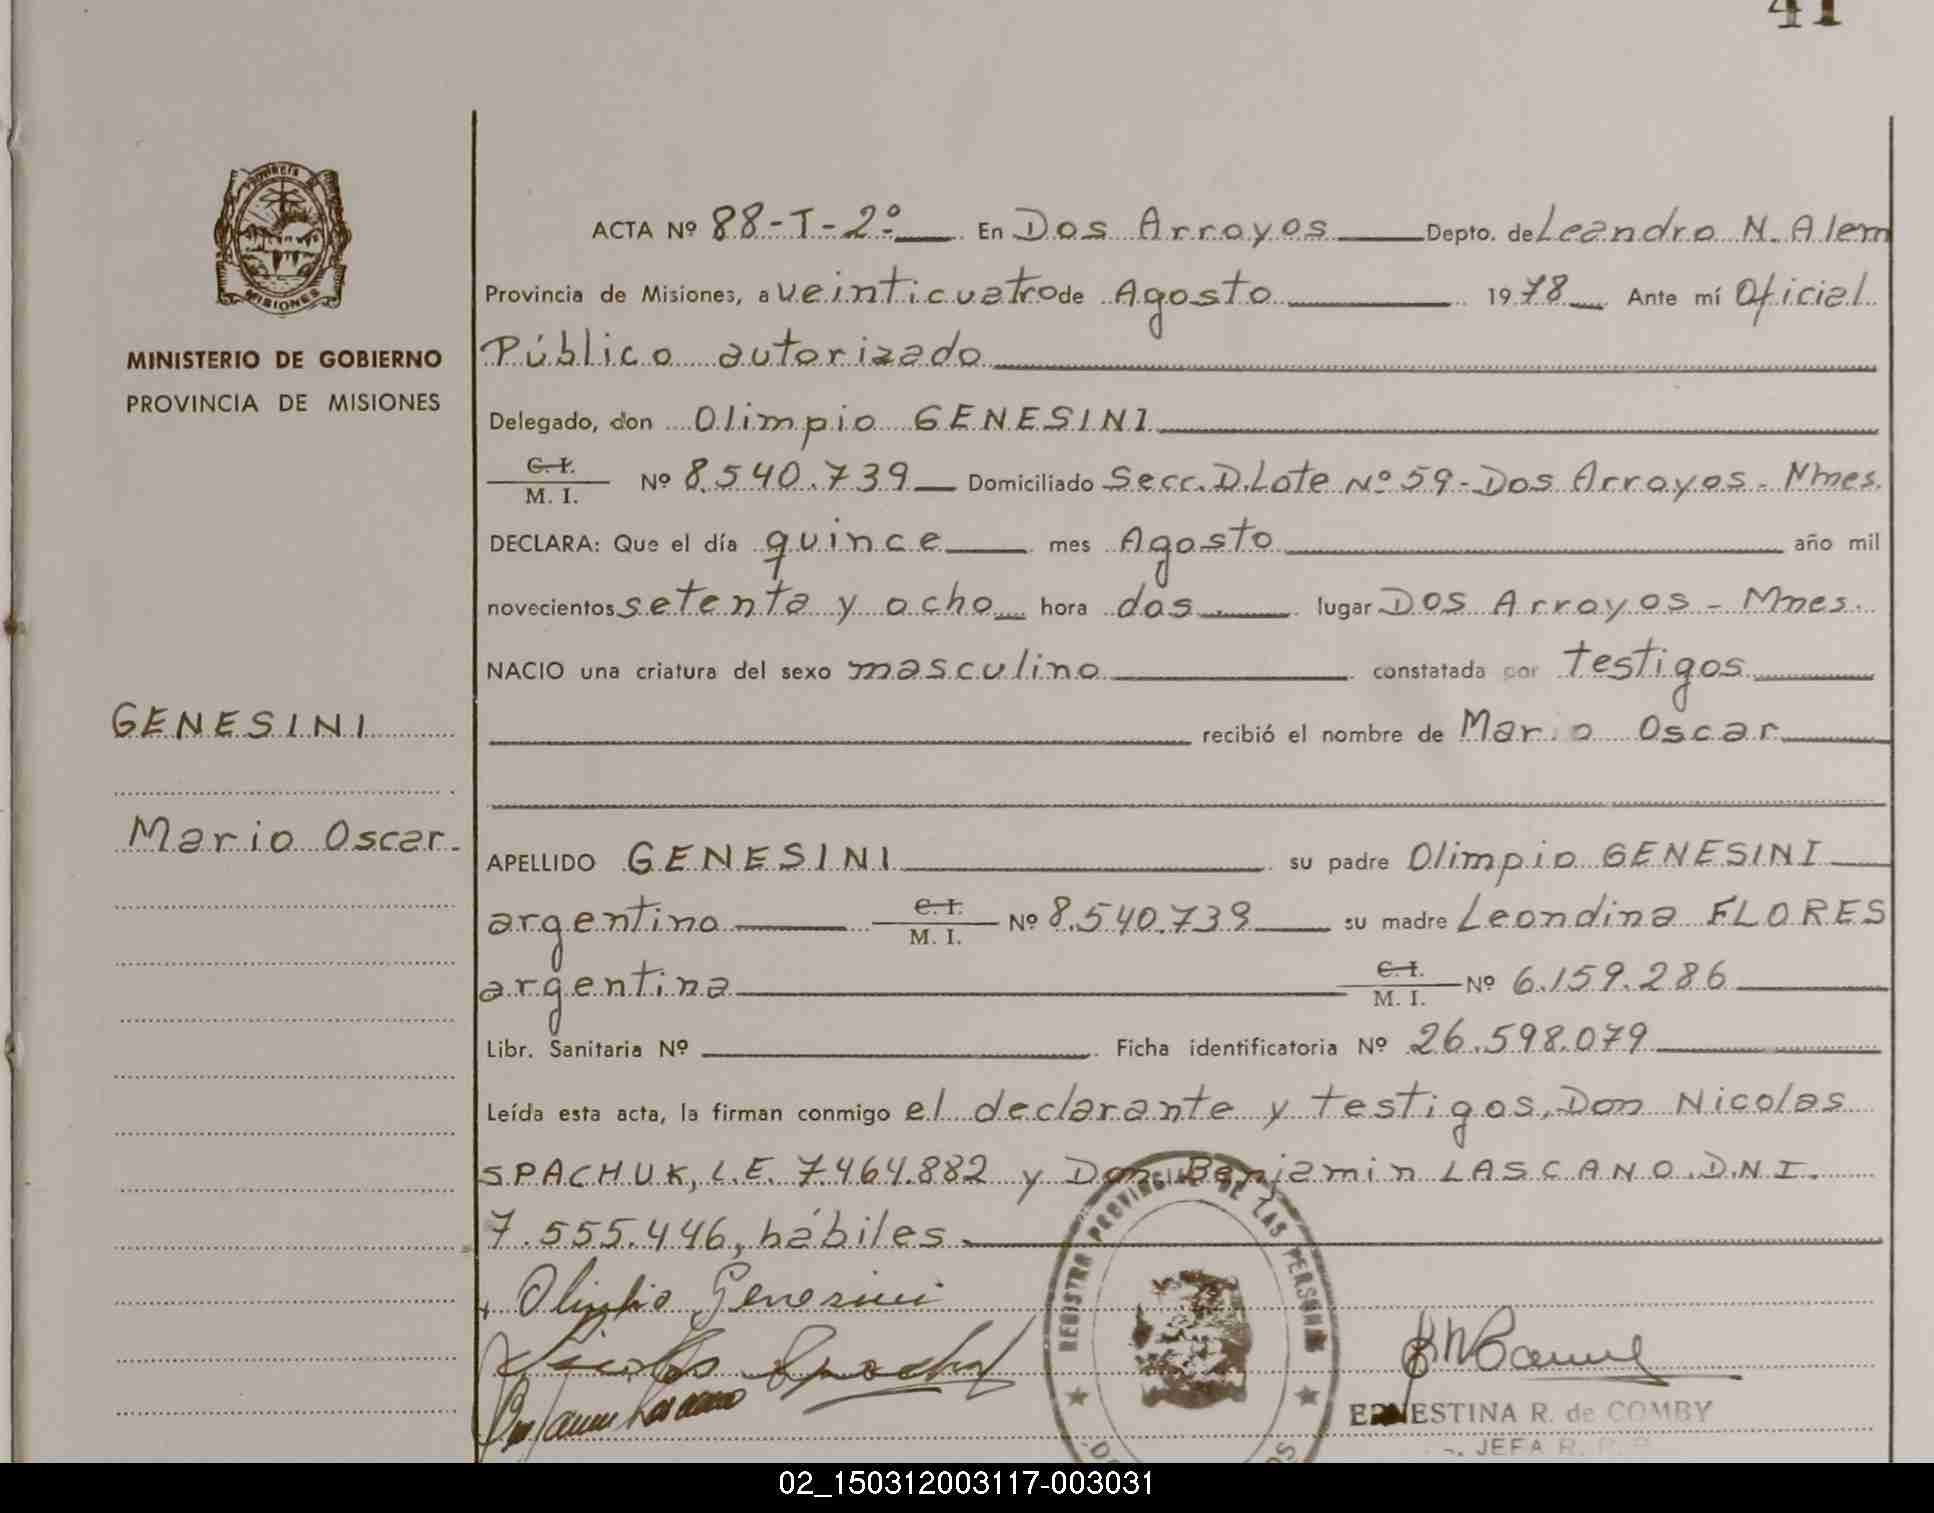 41
PROVINCIA DE
MISIONES
MINISTERIO DE GOBIERNO
PROVINCIA DE MISIONES
GENESINI
Mario Oscar.
ACTA Nº 88-T-2º En Dos Arroyos Depto. de Leandro N. Alem
Provincia de Misiones, a veinticuatro de Agosto 1978 Ante mí Oficial
Público autorizado
Delegado, don Olimpio GENESINI
C. I.
M. I. Nº 8.540.739 Domiciliado Secc. D. Lote Nº 59-Dos Arroyos- Mnes.
DECLARA: Que el día quince mes Agosto año mil
novecientos setenta y ocho hora dos. lugar Dos Arroyos - Mnes.
NACIO una criatura del sexo masculino constatada por testigos
recibió el nombre de Mario Oscar
APELLIDO GENESINI su padre Olimpio GENESINI
argentino C. I.
M. I. Nº 8.540.739 su madre Leondina FLORES
argentina C. I.
M. I. Nº 6.159.286
Libr. Sanitaria Nº Ficha identificatoria Nº 26.598.079
Leída esta acta, la firman conmigo el declarante y testigos, Don Nicolas
SPACHUK, L.E. 7.464.882 y Don Benjamin LASCANO. D.N.I.
7.555.446, hábiles.
Olimpio Genesini
REGISTRO PROVINCIAL DE LAS PERSONAS
ERNESTINA R. de COMBY
JEFA R.
02_150312003117-003031